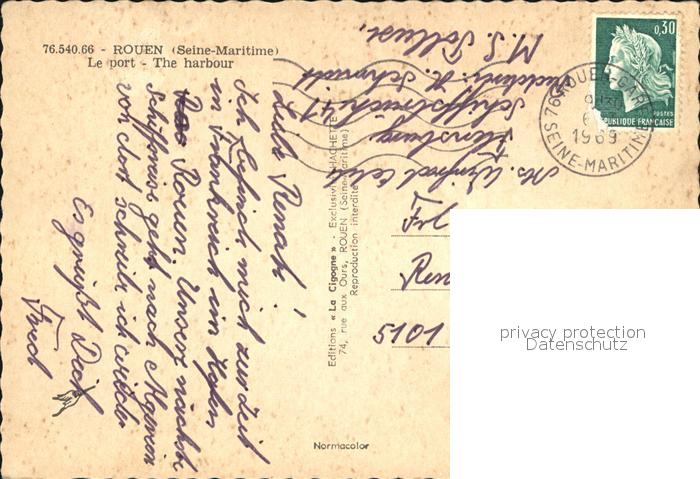 76.540.66 - ROUEN (Seine-Maritime)
Le port - The harbour
Liebe Renate!
Ich befinde mich zur Zeit
in Frankreich im Hafen
Rouen. Unsere nächste
Schiffsreise geht nach Algerien
von dort schreib ich wieder
Es grüßt Dich
Fred
M. S.
H. Schmidt
Schiffsbrücke 41
Flensburg
Editions « La Cigogne » - Exclusivité HACHETTE
74, rue aux Ours, ROUEN (Seine-Maritime)
Reproduction interdite
Normacolor
0,30
POSTES
REPUBLIQUE FRANÇAISE
76 ROUEN-GARE
1969
SEINE-MARITIME
Frl
Ren
5101
privacy protection
Datenschutz